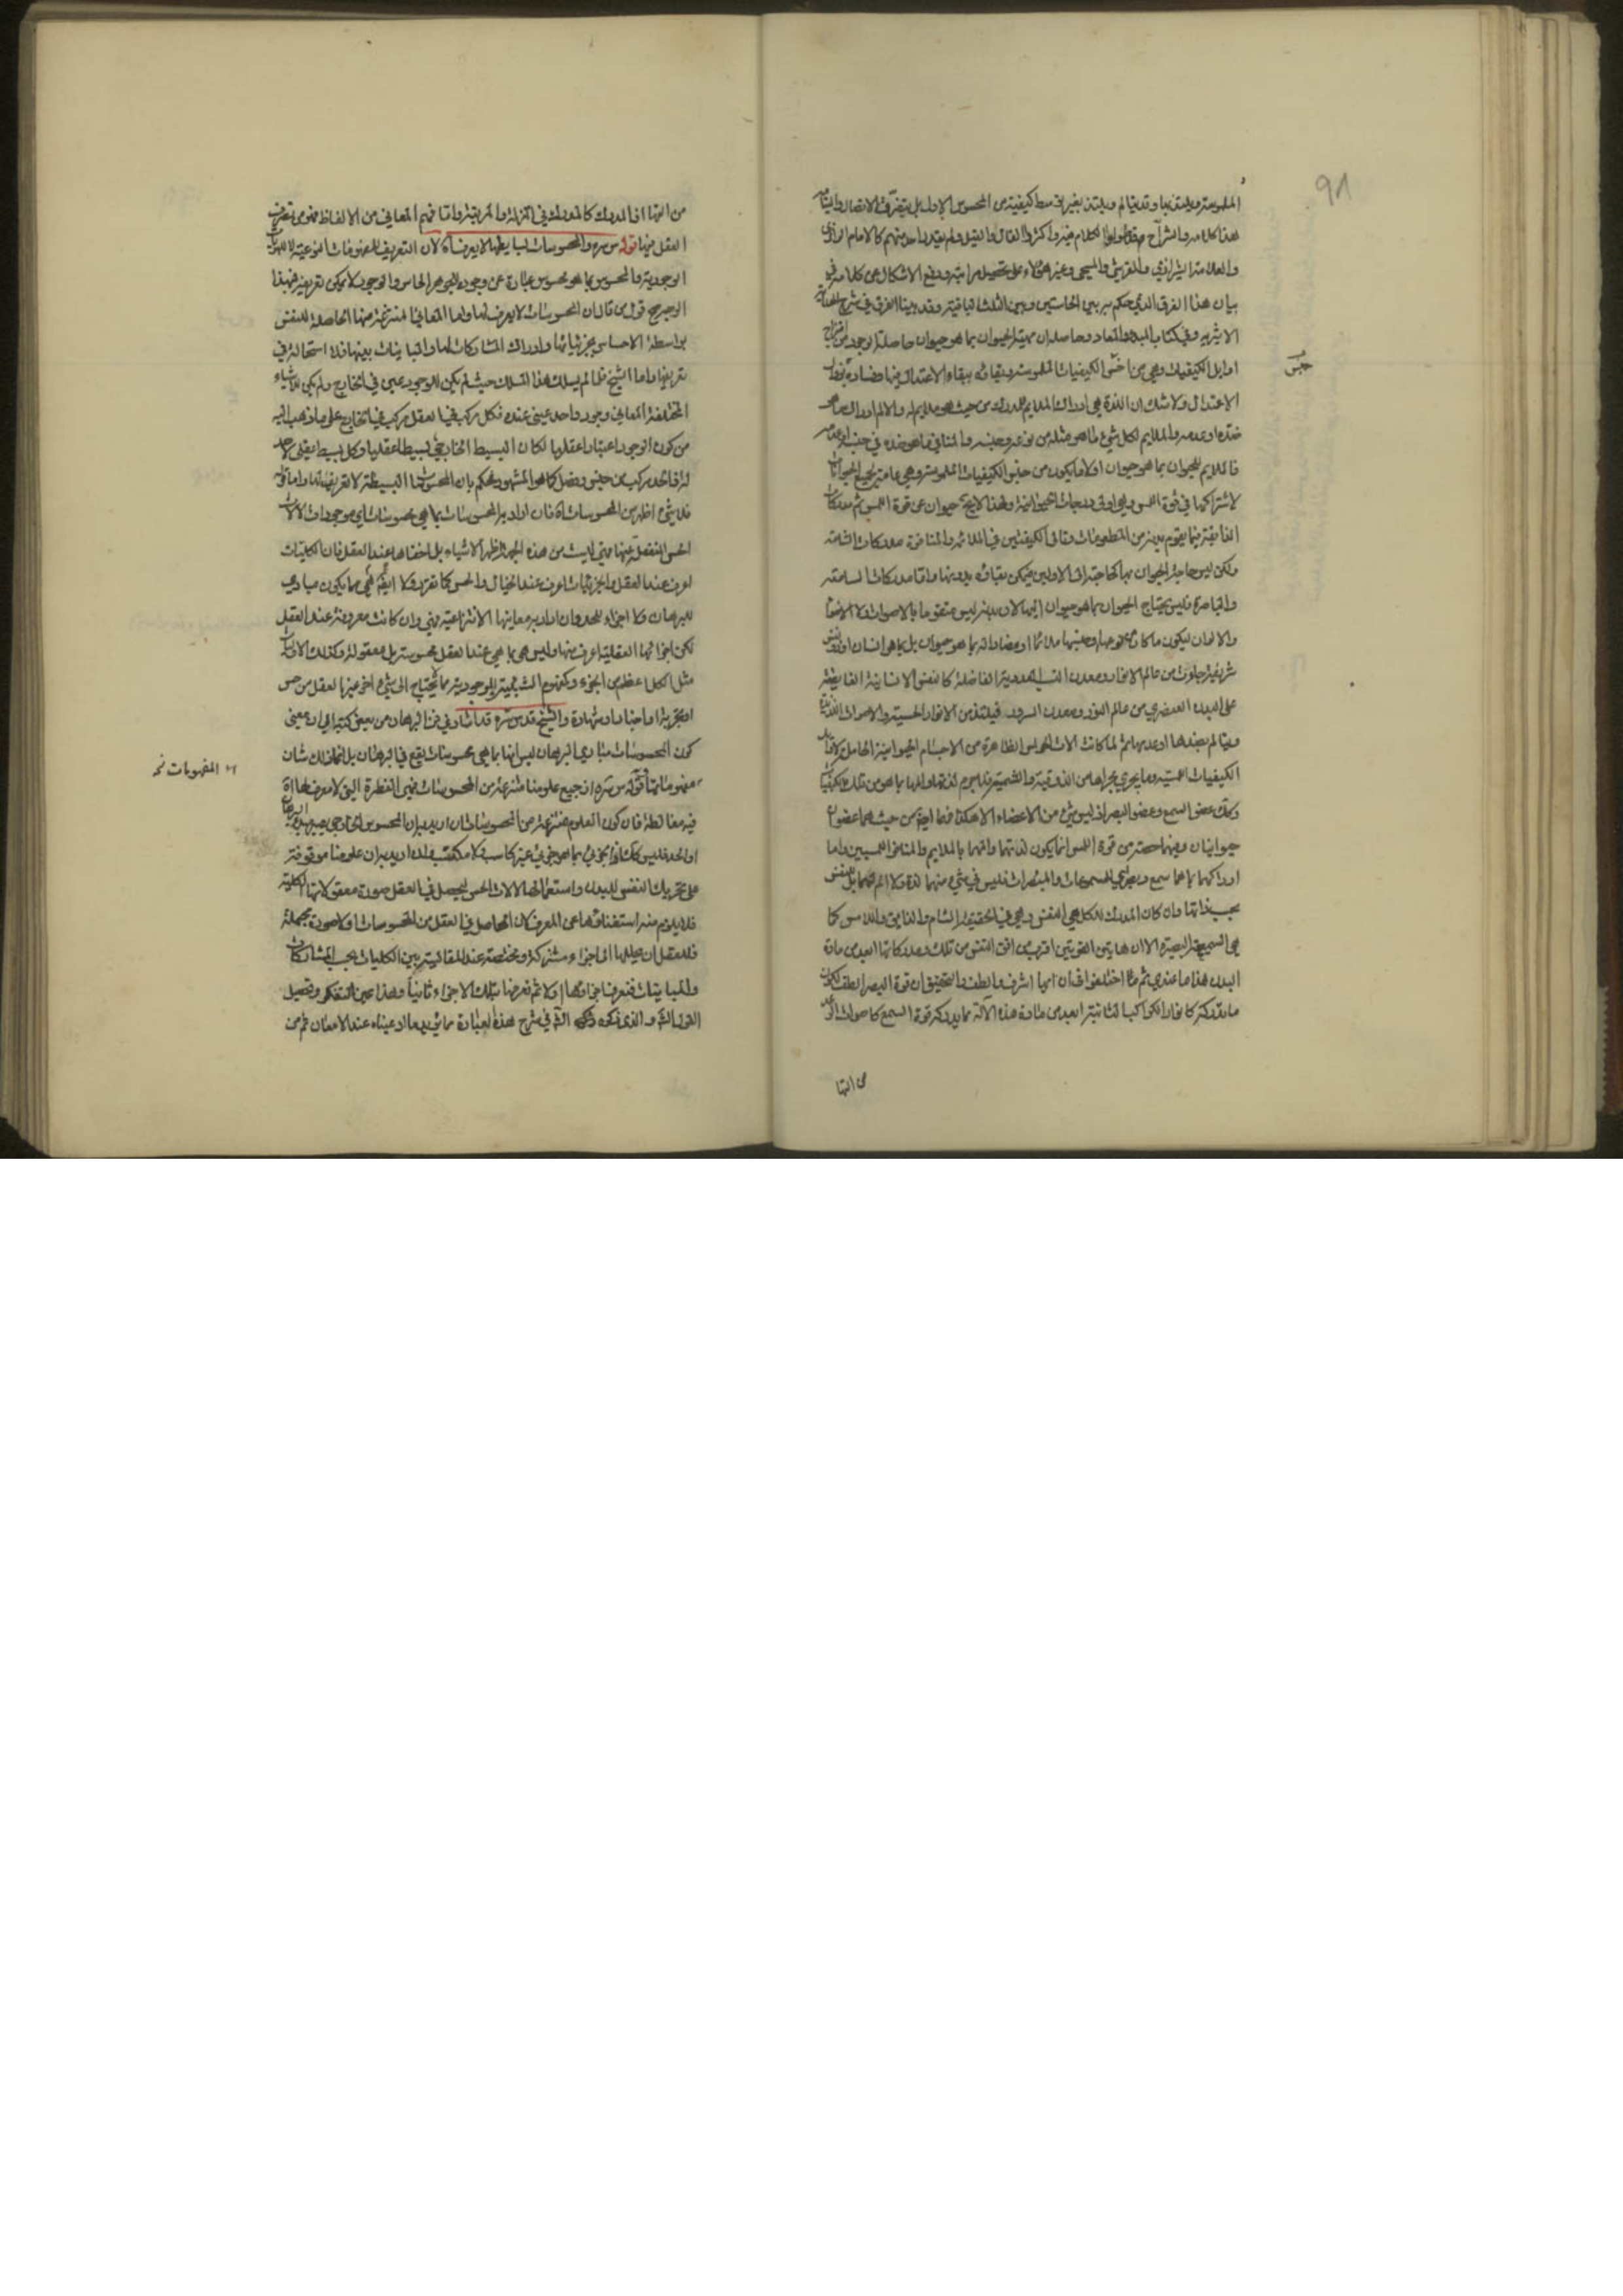 ٩٨
هذا كلامه والشراح قد طولوا الكلام فيه وأكثروا القال والقيل ولم يقدر واحد منهم كالامام الرازي
والعلامة الشيرازي والقرشي والمسيحي وغير هؤلاء على تحصيل مرامه ودفع الاشكال عن كلامه في
بيان هذا الفرق الذي حكم به بين الحاستين وبين الثلث الباقية وقد بينا الفرق في شرح الهداية
الاثيرية وفي كتاب المبدء والمعاد وحاصله ان مهية الحيوان بما هو حيوان حاصلة الوجود من امتزاج
اوايل الكيفيات وهي من اخس الكيفيات الملموسة وبقاؤه ببقاء الاعتدال فيها وفساده بزوال
الاعتدال ولا شك ان اللذة هي ادراك الملايم للمدرك من حيث هو ملايم له والالم ادراك ما هو
ضده او عدمه والملايم لكل شيء ما هو مثله من نوعه وجنسه والمنافي ما هو ضده في جنسه
فالملايم للحيوان بما هو حيوان اولا ما يكون من جنس الكيفيات الملموسة وهي عامة لجميع الحيوانات
لاشتراكها في قوة اللمس وهي ادنى درجات الحيوانية ولهذا لا يخ حيوان عن قوة اللمس ثم مدركات
الذايقة فيما يتقوم بدنه من المطعومات وتالى الكيفيتين في الملائمة والمنافرة مدركات الشامة
ولكن ليس حاجة الحيوان بها كحاجته الى الاولين فيمكن بقاؤه بدونها واما مدركات السامعة
والباصرة فليس يحتاج الحيوان بما هو حيوان اليهما لان بدنه ليس متقوما بالاصوات ولا الاضواء
والالوان ليكون ما كان من نوعها وجنسها ملائما او مضادا له بما هو حيوان بل بما هو انسان او ذو نفس
على البدن العنصري من عالم النور ومعدن السرور فيلتذ من الانوار الحسية والاصوات
ويتالم بضدها او عدمها ثم لما كانت الات الحواس الظاهرة من الاجسام الحيوانية الحاملة
الكيفيات اللمسية وما يجري مجراها من الذوقية والشمية فلا جرم لذتها والمها بما هو من تلك الكيفيات
وكذلك عضو السمع وعضو البصر اذ ليس شيء من الاعضاء الا هكذا فهما ايضا من حيث هما عضوان
حيوانيان وفيهما حصة من قوة اللمس انما يكون لذتهما والمهما بالملايم والمنافر اللمسيين واما
ادراكهما بما هما سمع وبصر اي المسموعات والمبصرات فليس في شيء منهما لذة ولا الم لهما بل للنفس
بحسب ذاتها وان كان المدرك للكل هي النفس وهي في الحقيقة الشام والذايق واللامس كما
هي السميعة البصيرة الا ان هاتين القوتين اقرب من افق النفس من تلك ومدركاتها ابعد من مادة
البدن هذا ما عندي ثم لما اختلفوا في ان ايهما اشرف والطف والتحقيق ان قوة البصر الطف لكون
ما يدركه كانوار الكواكب الثابتة ابعد من مادة هذه الآلة مما يدركه قوة السمع كاصوات الرعد
من انها
جنس
من انها اذ المدرك كالمدرك في المنزلة والمرتبة واما فهم المعاني من الالفاظ فهو من تصرف
العقل فيها قوله س سره والمحسوسات لبسايطها لا يعرف اه لان التعريف للمفهومات النوعية لا للهويات
الوجودية والمحسوس بما هو محسوس عبارة عن وجوده للجوهر الحاس والوجود لا يمكن تعريفه فبهذا
الوجه صح قول من قال ان المحسوسات لا يعرف لها واما المعاني المنتزعة منها الحاصلة للنفس
بواسطة الاحساس بجزئياتها وادراك المشاركات لها والمباينات بينها فلا استحالة في
تعريفها واما الشيخ فلما لم يسلك هذا المسلك حيث لم يكن للوجود عين في الخارج ولم يكن للاشياء
المختلفة المعاني وجود واحد عيني عنده فكل مركب في العقل مركب في الخارج على ما ذهب اليه
من كون الوجود اعتبارا عقليا لكان البسيط الخارجي بسيطا عقليا وكل بسيط عقلي لا حد
له اذ الحد مركب من جنس وفصل كما هو المشهور فحكم بان المحسوسات البسيطة لا تعريف لها واما قوله
فلا شيء اظهر من المحسوسات اه فان اراد به المحسوسات بما هي محسوسات اي موجودات لالات
الحس المنفعلة عنها فهي ليست من هذه الجهة اظهر الاشياء بل اخفاها عند العقل فان الكليات
اعرف عند العقل والجزئيات اعرف عند الخيال والحس كما تقرر ولا ايضا هي مما يكون مبادي
للبرهان ولا اجزاء للحد وان اراد به معانيها الانتزاعية فهي وان كانت معروفة عند العقل
لكن اجزائها العقلية اعرف منها وليس هي بما هي عند العقل محسوسة بل معقولة وكذلك الاوليات
مثل الكل اعظم من الجزء وكمفهوم الشيئية والوجودية مما لا يحتاج الى شيء اخر غير العقل من حس
او تجربة او اخبار او شهادة والشيخ قدس سره قد اشار في فن البرهان من بعض كتبه الى ان معنى
كون المحسوسات مبادي البرهان ليس انها بما هي محسوسات يقع في البرهان بل انما ذلك شان
مفهوماتها قوله س سره ان جميع علومنا منتزعة من المحسوسات فهي الفطرة التي لا معرف لها اه
فيه مغالطة فان كون العلوم منتزعة من المحسوسات ان اريد به ان المحسوس الخارجي يصير به البرهان
او الحد فليس كذلك اذ الجزئي بما هو جزئي غير كاسب ولا مكتسب وان اريد به ان علومنا موقوفة
على تحريك النفس للبدن واستعمالها لالات الحس ليحصل في العقل صورة معقولاتها الكلية
فلا يلزم منه استغناؤها عن المعرف لان الحاصل في العقل من المحسوسات اولا صورة مجملة
فللعقل ان يحللها الى اجزاء مشتركة ومختصة عند المقايسة بين الكليات بحسب المشاركات
والمباينات فنعرف اجزاؤها اولا ثم نعرفها بتلك الاجزاء ثانيا وهذا عين التفكر وتحصيل
القول الشارح والذي ذكره الشارح في شرح هذه العبارة مما يؤيد ما ادعيناه عند الامعان ثم من
المفهومات نخ